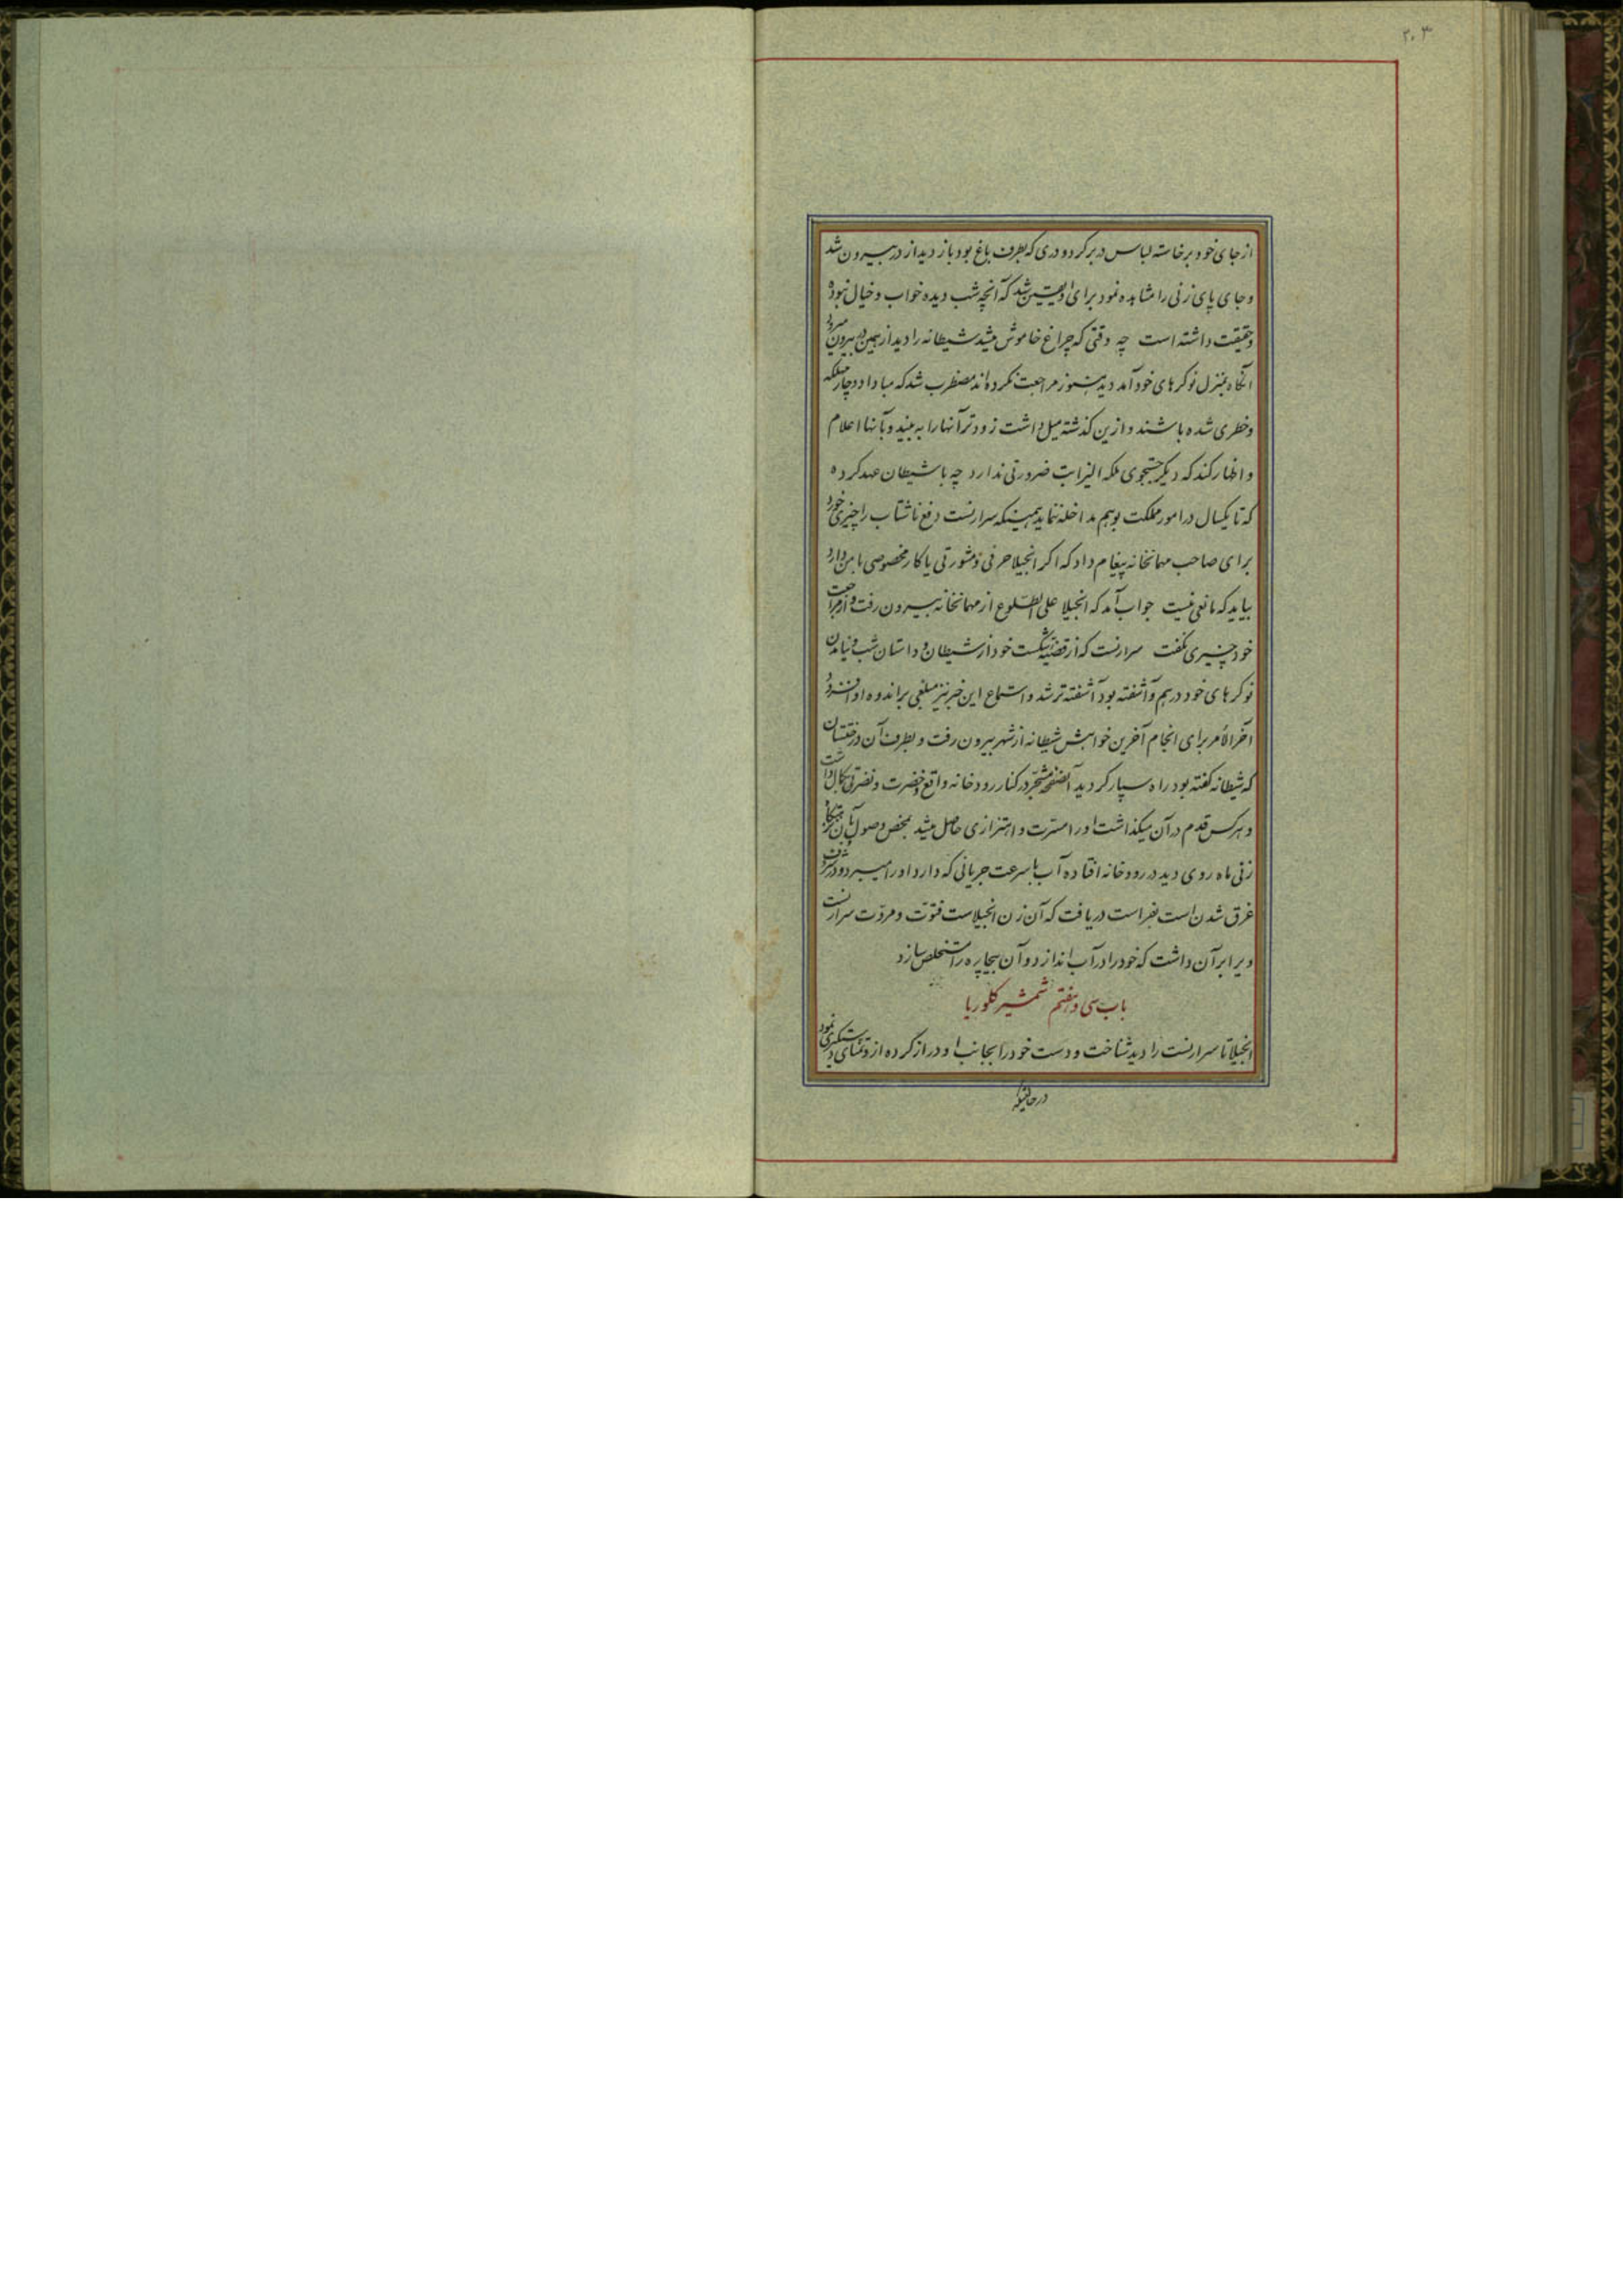 ۲۰۳
از جای خود برخاسته لباس در بر کرد و دری که بطرف باغ بود باز دید از در بیرون شد
و جای پای زنی را مشاهده نمود برای او یقین شد که آنچه شب دیده خواب و خیال نبوده
و حقیقت داشته است چه وقتی که چراغ خاموش میشد شیطانه را دید از همین در بیرون میرود
آنگاه بمنزل نوکرهای خود آمد دید هنوز مراجعت نکرده‌اند مضطرب شد که مبادا دچار مهلکه
و خطری شده باشند و ازین گذشته میل داشت زودتر آنها را به بیند و بآنها اعلام
و اظهار کند که دیگر جستجوی ملکه الیزابت ضرورتی ندارد چه با شیطان عهد کرده
که تا یکسال در امور مملکت بوهم مداخله ننماید همینکه سرارنست دفع ناشتاب را چیزی خورد
برای صاحب مهمانخانه پیغام داد که اگر انجیلا حرفی و مشورتی یا کار مخصوصی با من دارد
بیاید که مانعی نیست جواب آمد که انجیلا علی الطلوع از مهمانخانه بیرون رفت و از مراجعت
خود چیزی نگفت سرارنست که از قضیه شکست خود از شیطان و داستان شب و نیامدن
نوکرهای خود درهم و آشفته بود آشفته‌تر شد و استماع این خبر نیز مبلغی بر اندوه او افزود
آخرالأمر برای انجام آخرین خواهش شیطانه از شهر بیرون رفت و بطرف آن درختستان
که شیطانه گفته بود راه سپار گردید آنصفحه مشجر در کنار رودخانه واقع و خضرت و نضرتی بکمال داشت
و هر کس قدم در آن میگذاشت او را مسرت و اهتزازی حاصل میشد بمحض وصول بآن
زنی ماه روی دید در رودخانه افتاده آب با سرعت جریانی که دارد او را میبرد و در شرف
غرق شدن است بفراست دریافت که آن زن انجیلاست فتوت و مردت سرارنست
ویرا بر آن داشت که خود را در آب اندازد و آن بیچاره را مستخلص سازد
باب سی و هفتم شمشیر کلوریا
انجیلا تا سرارنست را دید شناخت و دست خود را بجانب او دراز کرده از و تمنای دستگیری نمود
در حالتیکه